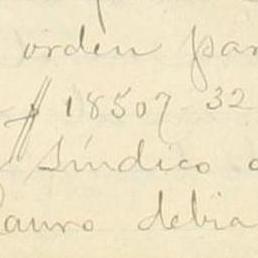 orden par
$ 18507 32
Síndico
Lauro debia